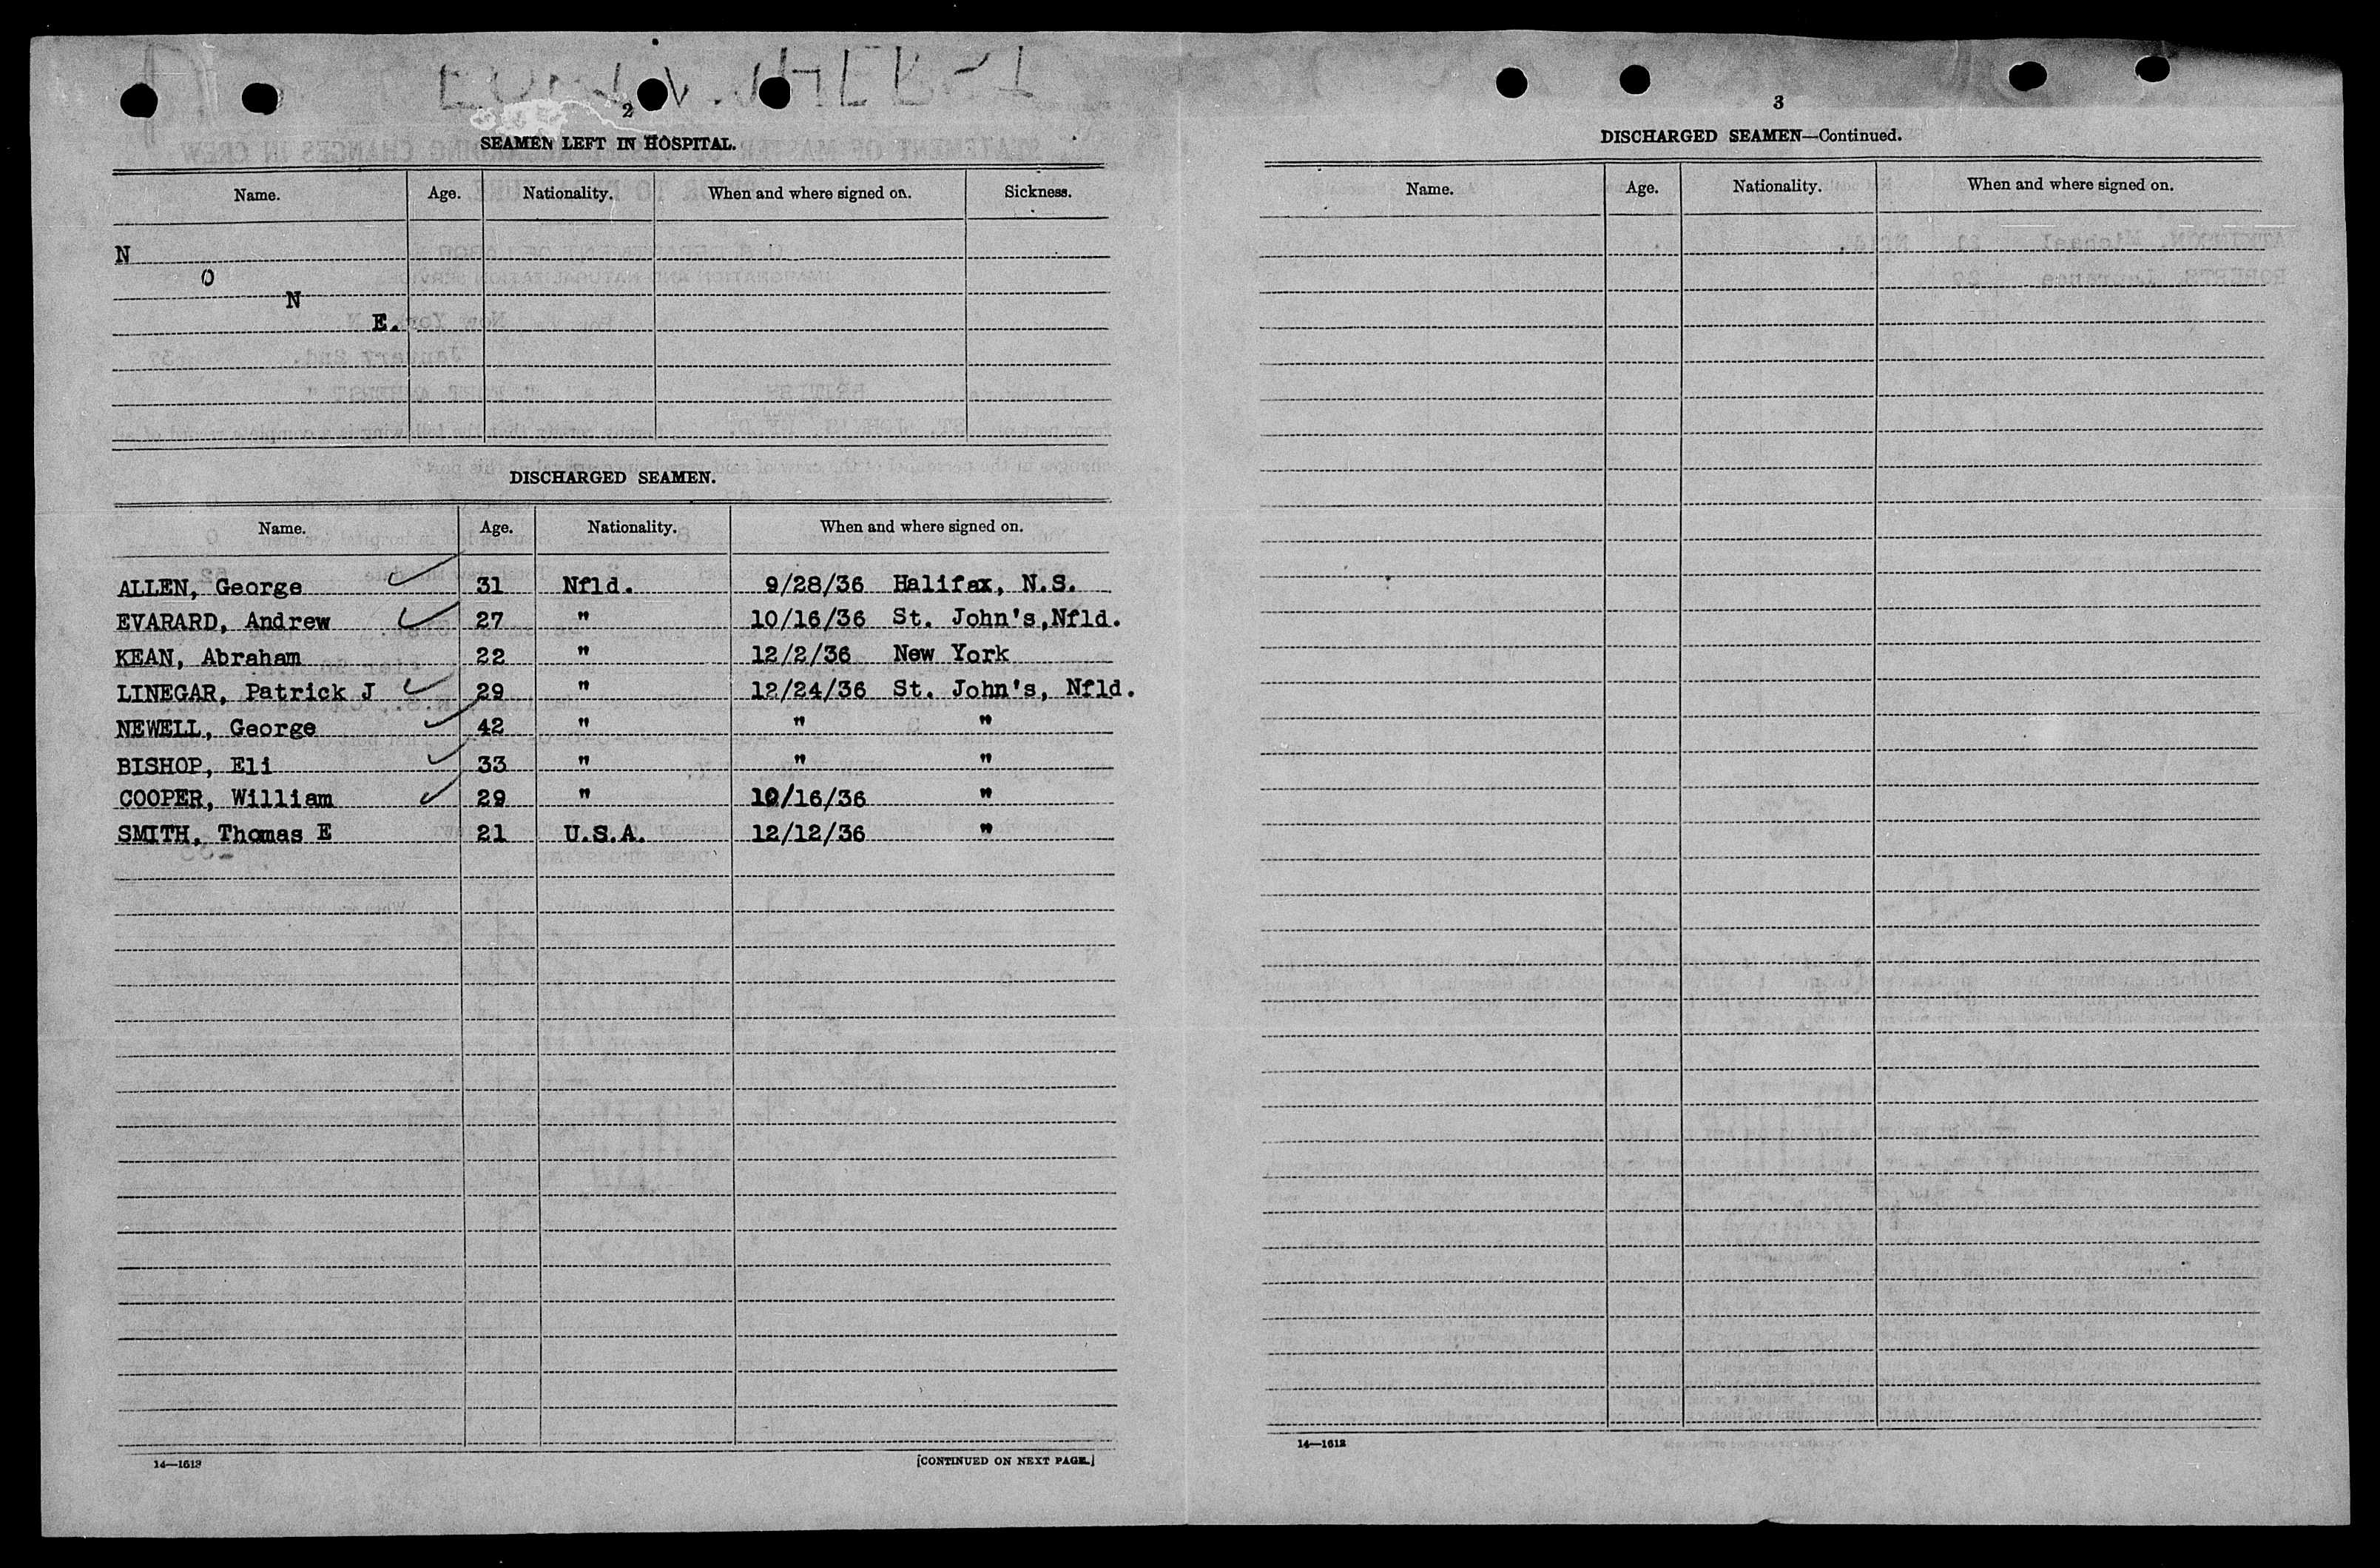 2
SEAMEN LEFT IN HOSPITAL.
Name. Age. Nationality. When and where signed on. Sickness.
N
O
N
E.
DISCHARGED SEAMEN.
Name. Age. Nationality. When and where signed on.
ALLEN, George 31 Nfld. 9/28/36 Halifax, N.S.
EVARARD, Andrew 27 " 10/16/36 St. John's,Nfld.
KEAN, Abraham 22 " 12/2/36 New York
LINEGAR, Patrick J 29 " 12/24/36 St. John's, Nfld.
NEWELL, George 42 " " "
BISHOP, Eli 33 " " "
COOPER, William 29 " 10/16/36 "
SMITH, Thomas E 21 U.S.A. 12/12/36 "
14—1613 [CONTINUED ON NEXT PAGE.]
3
DISCHARGED SEAMEN—Continued.
Name. Age. Nationality. When and where signed on.
14—1612